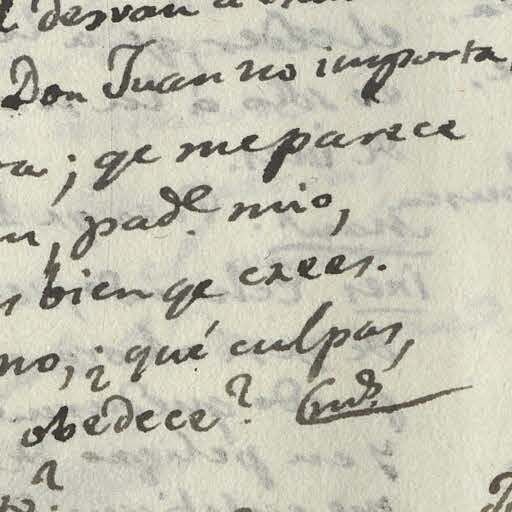 desvan a
Don Juan no importa,
; qe me parece
, pad.e mio,
bien qe crees.
no, ¿ qué culpas,
obedece?